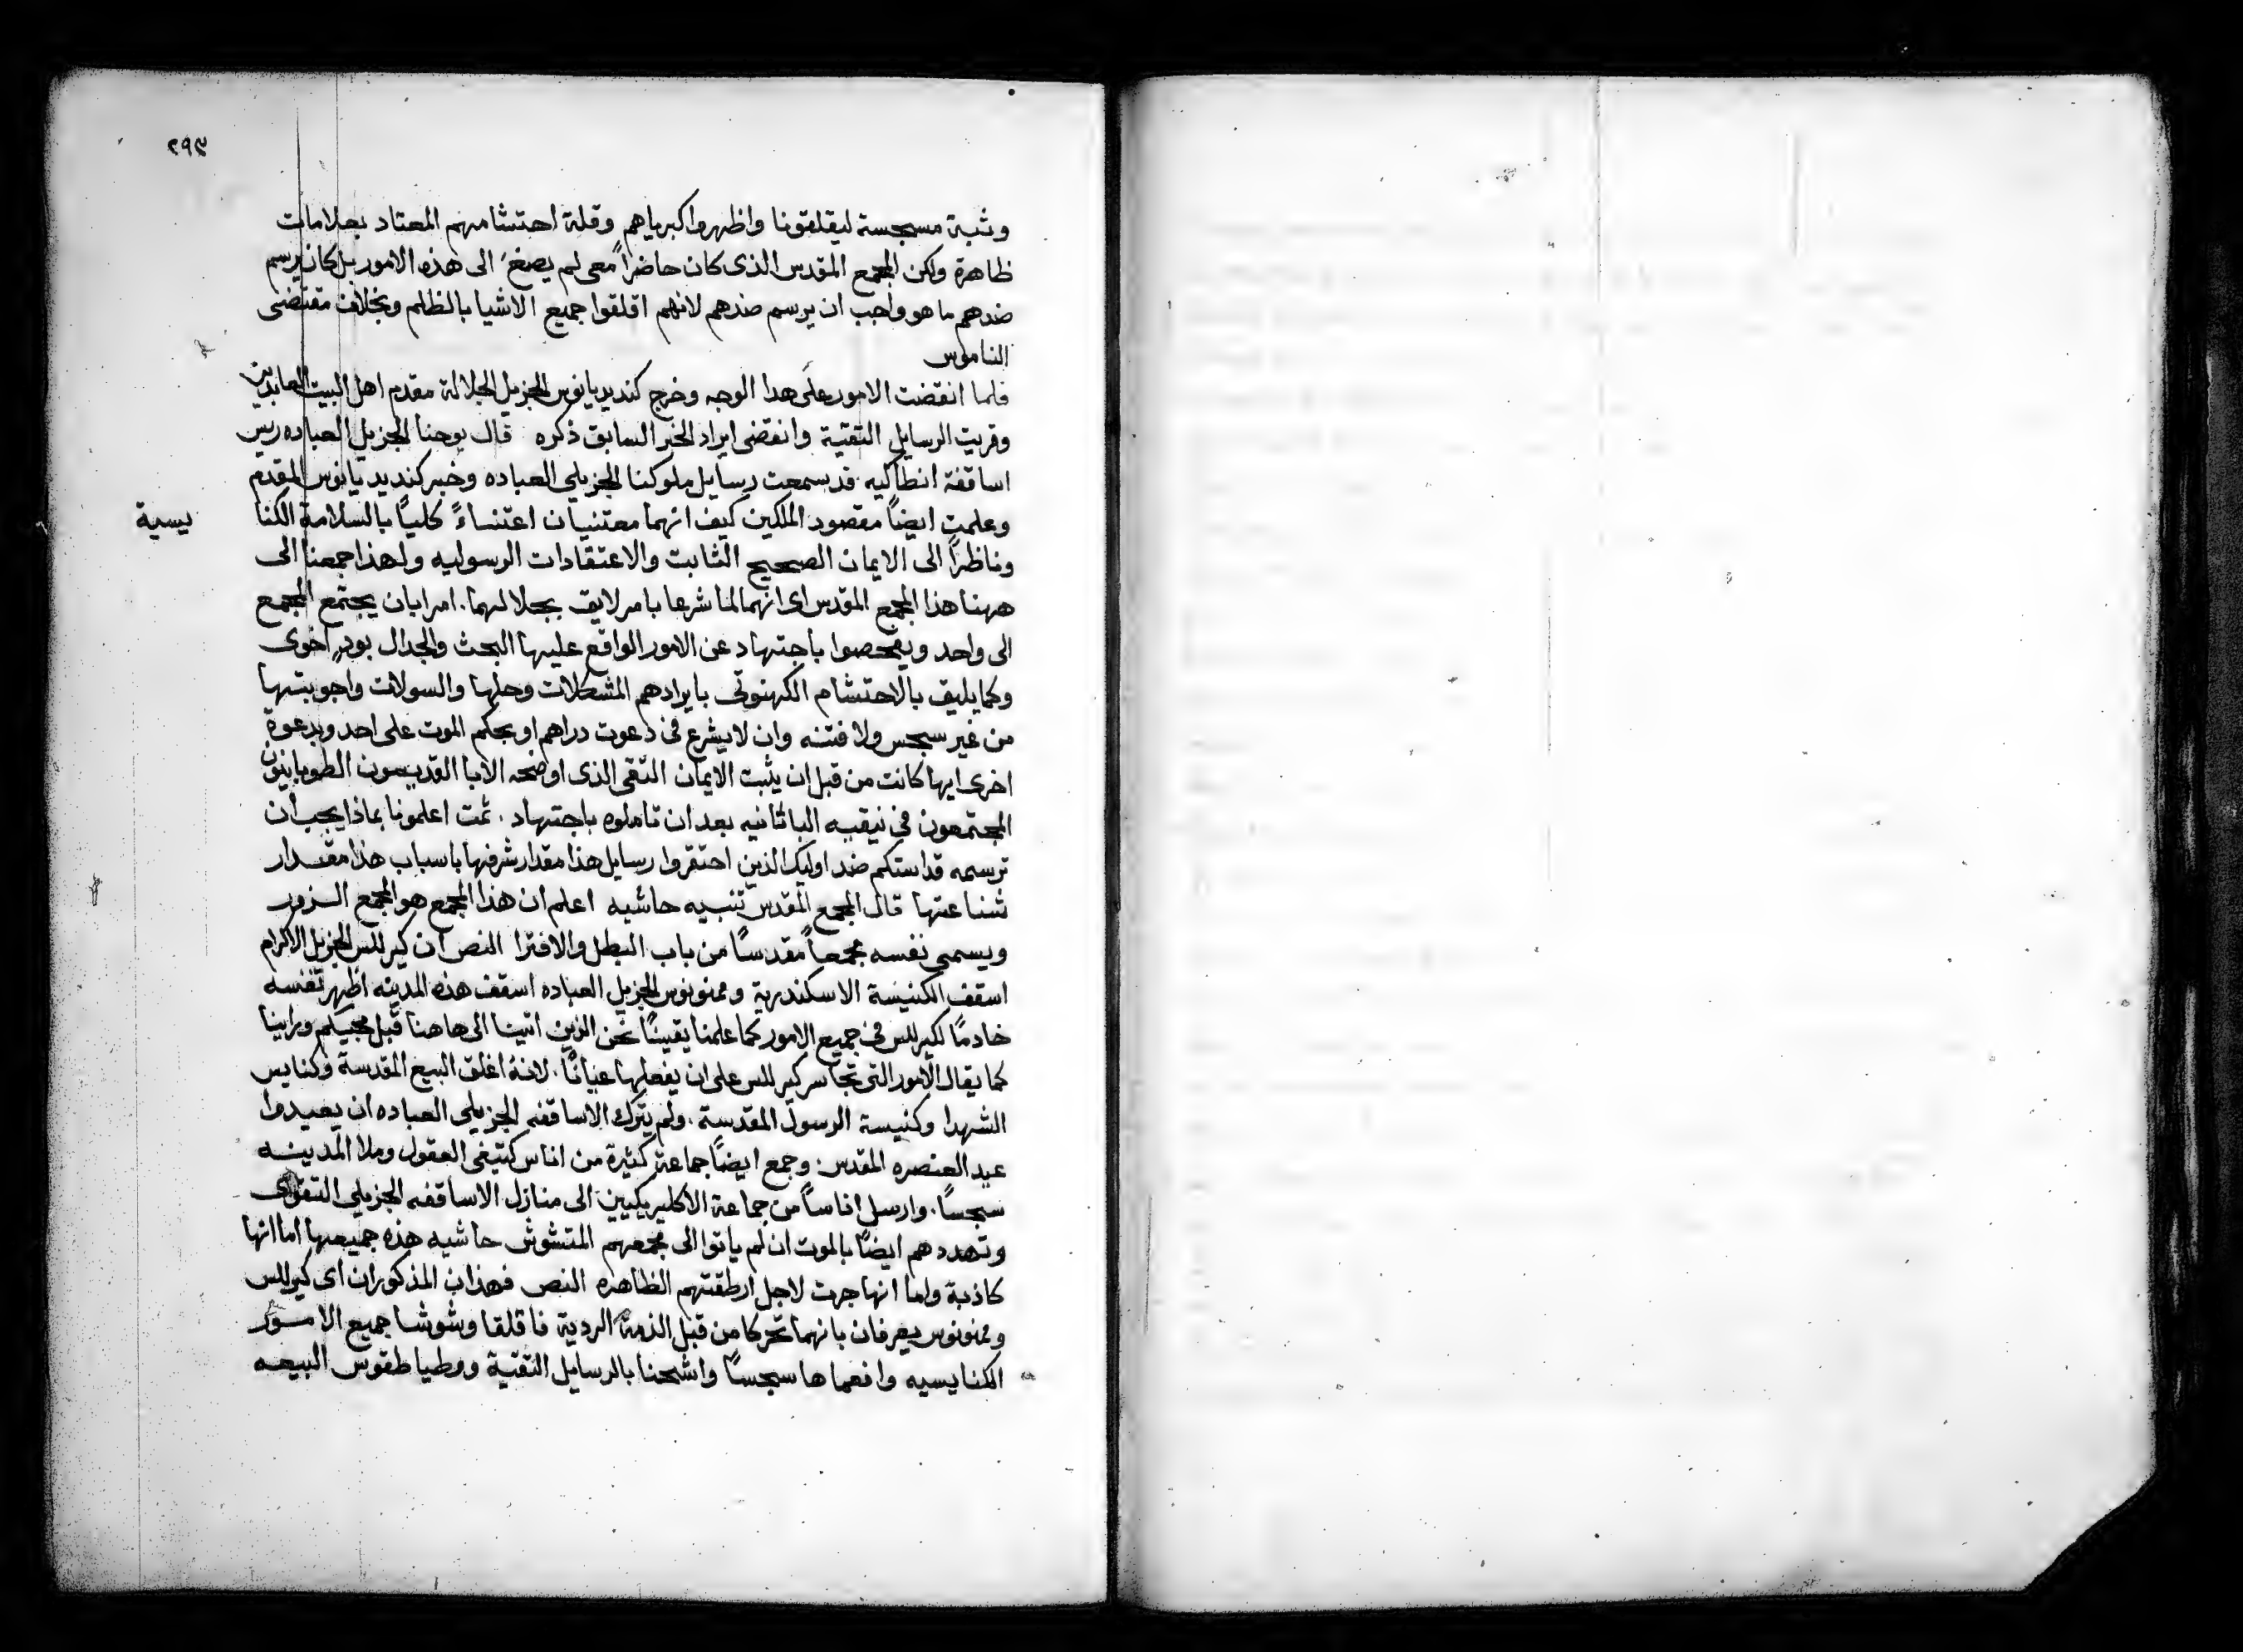 ٢٩٣
وثبة مسجسة ليقلقونا واظهروا كبرياهم وقلة احتشامهم المعتاد بعلامات
ظاهرة ولكن المجمع المقدس الذى كان حاضراً معى لم يصغَ الى هذه الامور بل كان يرسم
ضدهم ما هو واجب ان يرسم ضدهم لانهم اقلقوا جميع الاشيا بالظلم وبخلاف مقتضى
الناموس
فلما انقضت الامور على هدا الوجه وخرج كنديديانوس الجزيل الجلالة مقدم اهل البيت العابدين
وقريت الرسايل التقيّة وانقضى ايراد الخبر السابق ذكره قال يوحنا الجزيل العباده ريس
اساقفة انطاكيه قد سمعت رسايل ملوكنا الجزيلى العباده وخبر كنديديانوس المقدم
وعلمت ايضاً مقصود الملكين كيف انهما معتنيان اعتنساءً كلياً بالسلامة الكنا
يسية
وناظراً الى الايمان الصحيح الثابت والاعتقادات الرسوليه ولهذا جمعنا الى
ههنا هذا المجمع المقدس اى انهما لما شرعا بامر لايق بجلالهما. امرا بان يجتمع المجمع
الى واحد ويفحصوا باجتهاد عن الامور الواقع عليها البحث والجدال بودٍ اخوى
وكما يليق بالاحتشام الكهنوتى بايرادهم المشكلات وحلها والسولات واجوبتها
من غير سجس ولا فتنه وان لا يشرع فى دعوت دراهم او بحكم الموت على احد وبدعوة
اخرى ايها كانت من قبل ان يثبت الايمان التقى الذى اوضحه الابا القديسون الطوبانيون
المجتمعون فى نيقيه الباثانيه بعد ان تاملوه باجتهاد. ثمت اعلمونا بماذا يجب ان
ترسمه قداستكم ضد اوليك الذين احتقروا رسايل هذا مقدار شرفها باسباب هذا مقدار
شناعتها قال المجمع المقدس تنبيه حاشيه اعلم ان هذا المجمع هو المجمع الزور
ويسمى نفسه مجمعاً مقدساً من باب البطل والافترا النص ان كيرللس الجزيل الاكرام
اسقف الكنيسة الاسكندرية وممنونوس الجزيل العباده اسقف هذه المدينه اظهر نفسه
خادمًا لكيرللس فى جميع الامور كما علمنا يقيناً نحن الذين اتينا الى هاهنا قبل مجيكم وراينا
كما يقال الامور التى تجاسر كيرللس على ان يفعلها عياناً. لانهُ اغلق البيع المقدسة وكنايس
الشهدا وكنيسة الرسول المقدسة. ولم يترك الاساقفه الجزيلى العباده ان يعيدوا
عيد العنصره المقدس. وجمع ايضاً جماعة كثيرة من اناس كتيفى العقول وملا المدينه
سجساً. وارسل اناساً من جماعة الاكليريكيين الى منازل الاساقفه الجزيلى التقوى
وتهددهم ايضاً بالموت ان لم ياتوا الى مجمعهم المتشوش حاشيه هذه جميعها اما انها
كاذبة واما انها جرت لاجل ارطقتهم الظاهره النص فهذان المذكوران اى كيرللس
وممنونوس يعرفان بانهما تحركا من قبل الذمة الردية فاقلقا وشوشا جميع الامور
الكنايسيه وافعماها سجساً واشحنا بالرسايل التقيّة ووطيا طقوس البيعه